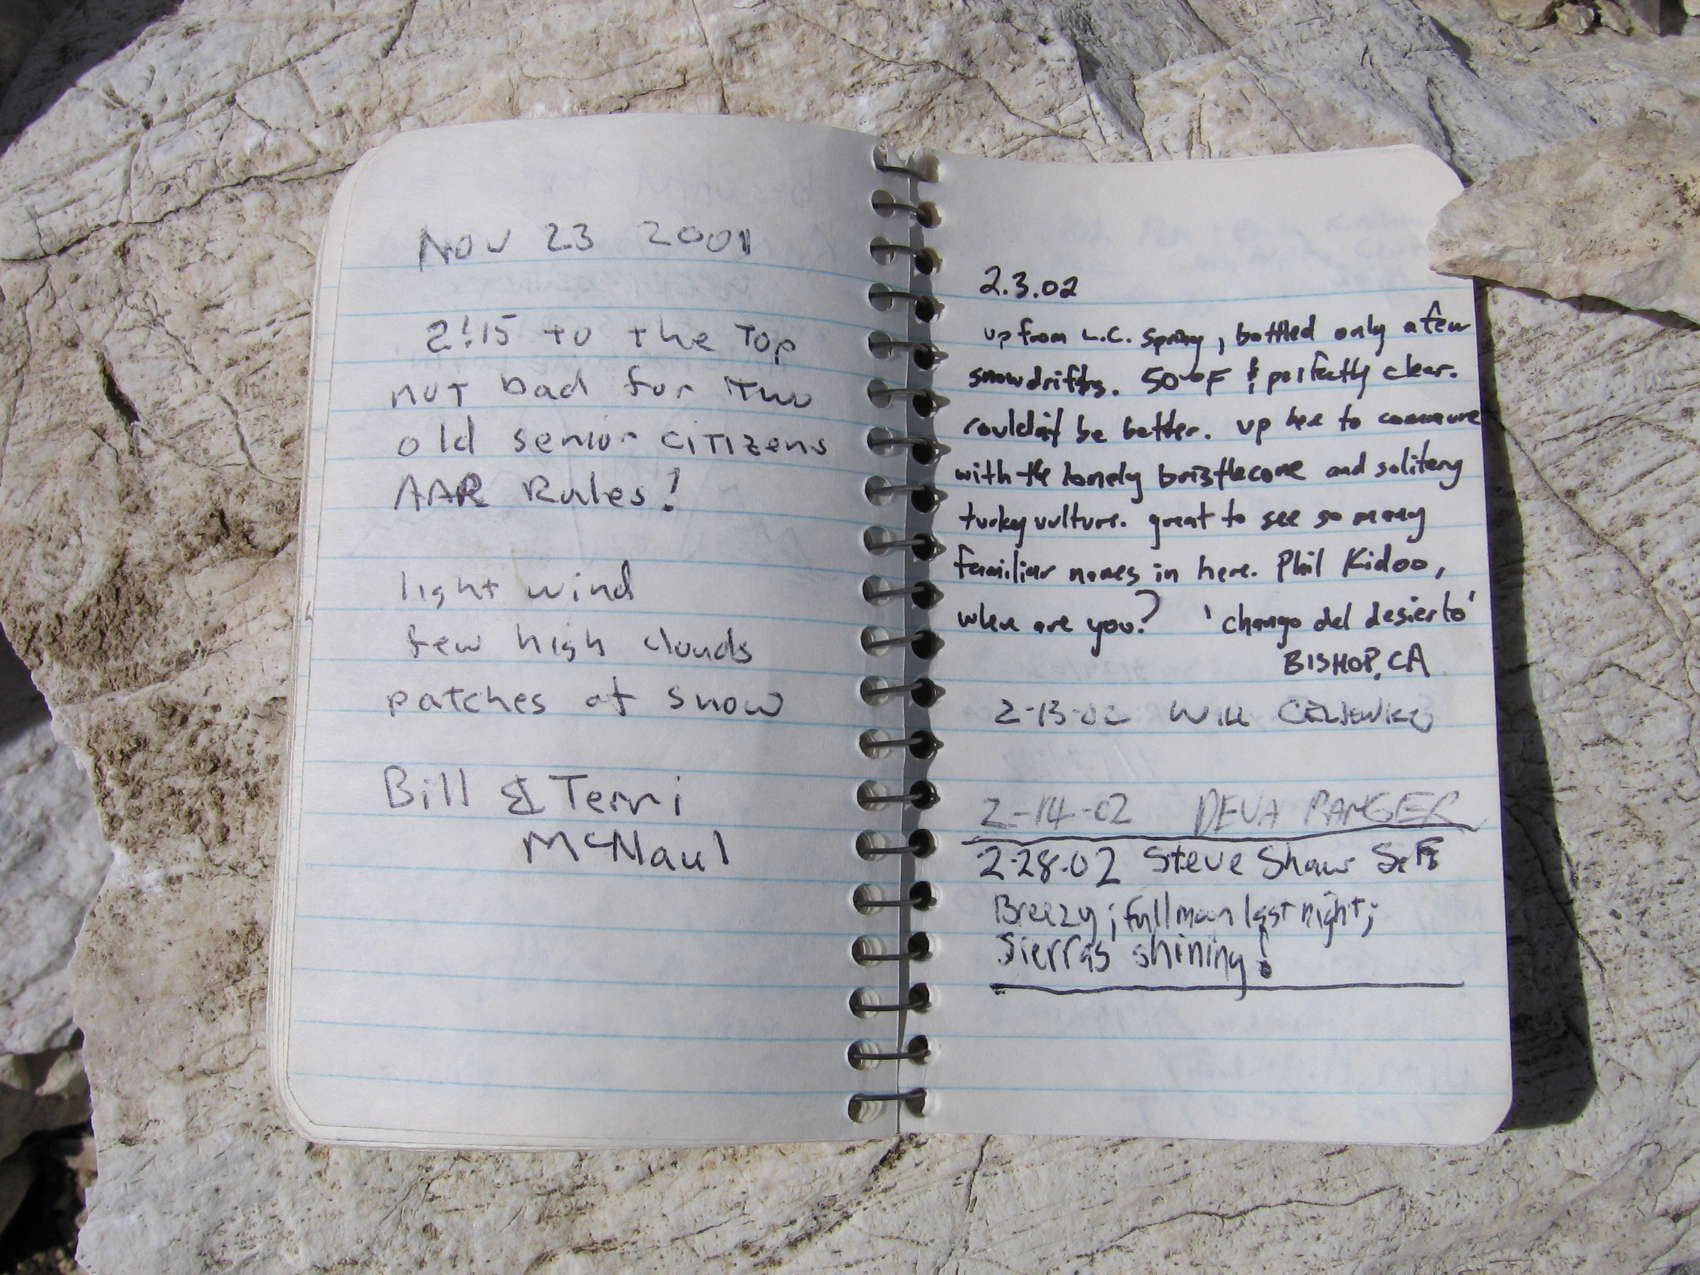 Nov 23 2001
2:15 to the Top
not bad for two
old senior citizens
AAR Rules!
light wind
few high clouds
patches of snow
Bill & Terri
McNaul
2.3.02
up from L.C. Spring, battled only a few
snowdrifts. 50°F & perfectly clear.
couldn't be better. up here to commune
with the lonely bristlecone and solitary
turkey vulture. great to see so many
familiar names in here. Phil Kidoo,
where are you? 'chango del desierto'
BISHOP, CA
2-13-02 Will
2-14-02 DEVA RANGER
2-28-02 Steve Shaw
Breezy; full moon last night;
Sierras shining!